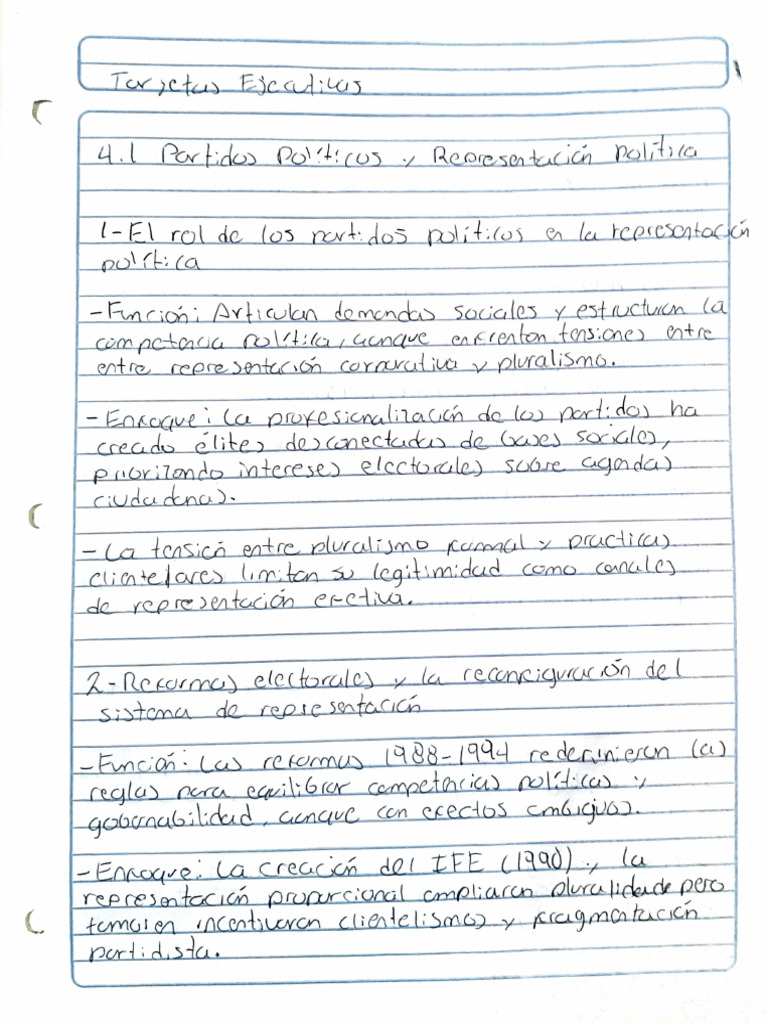 Tarjetas Ejecutivas
4.1 Partidos Políticos y Representación política
1-El rol de los partidos políticos en la representación
política
-Función: Articulan demandas sociales y estructuran la
competencia política, aunque enfrentan tensiones entre
entre representación corporativa y pluralismo.
-Enfoque: La profesionalización de los partidos ha
creado élites desconectadas de bases sociales,
priorizando intereses electorales sobre agendas
ciudadanas.
-La tensión entre pluralismo formal y practicas
clientelares limitan su legitimidad como canales
de representación efectiva.
2-Reformas electorales y la reconfiguración del
sistema de representación
-Función: Las reformas 1988-1994 redefinieron las
reglas para equilibrar competencias políticas y
gobernabilidad, aunque con efectos ambiguos.
-Enfoque: La creación del IFE (1990) y la
representación proporcional ampliaron pluralidade pero
tamoien incentivaron clientelismos y fragmentación
partidista.